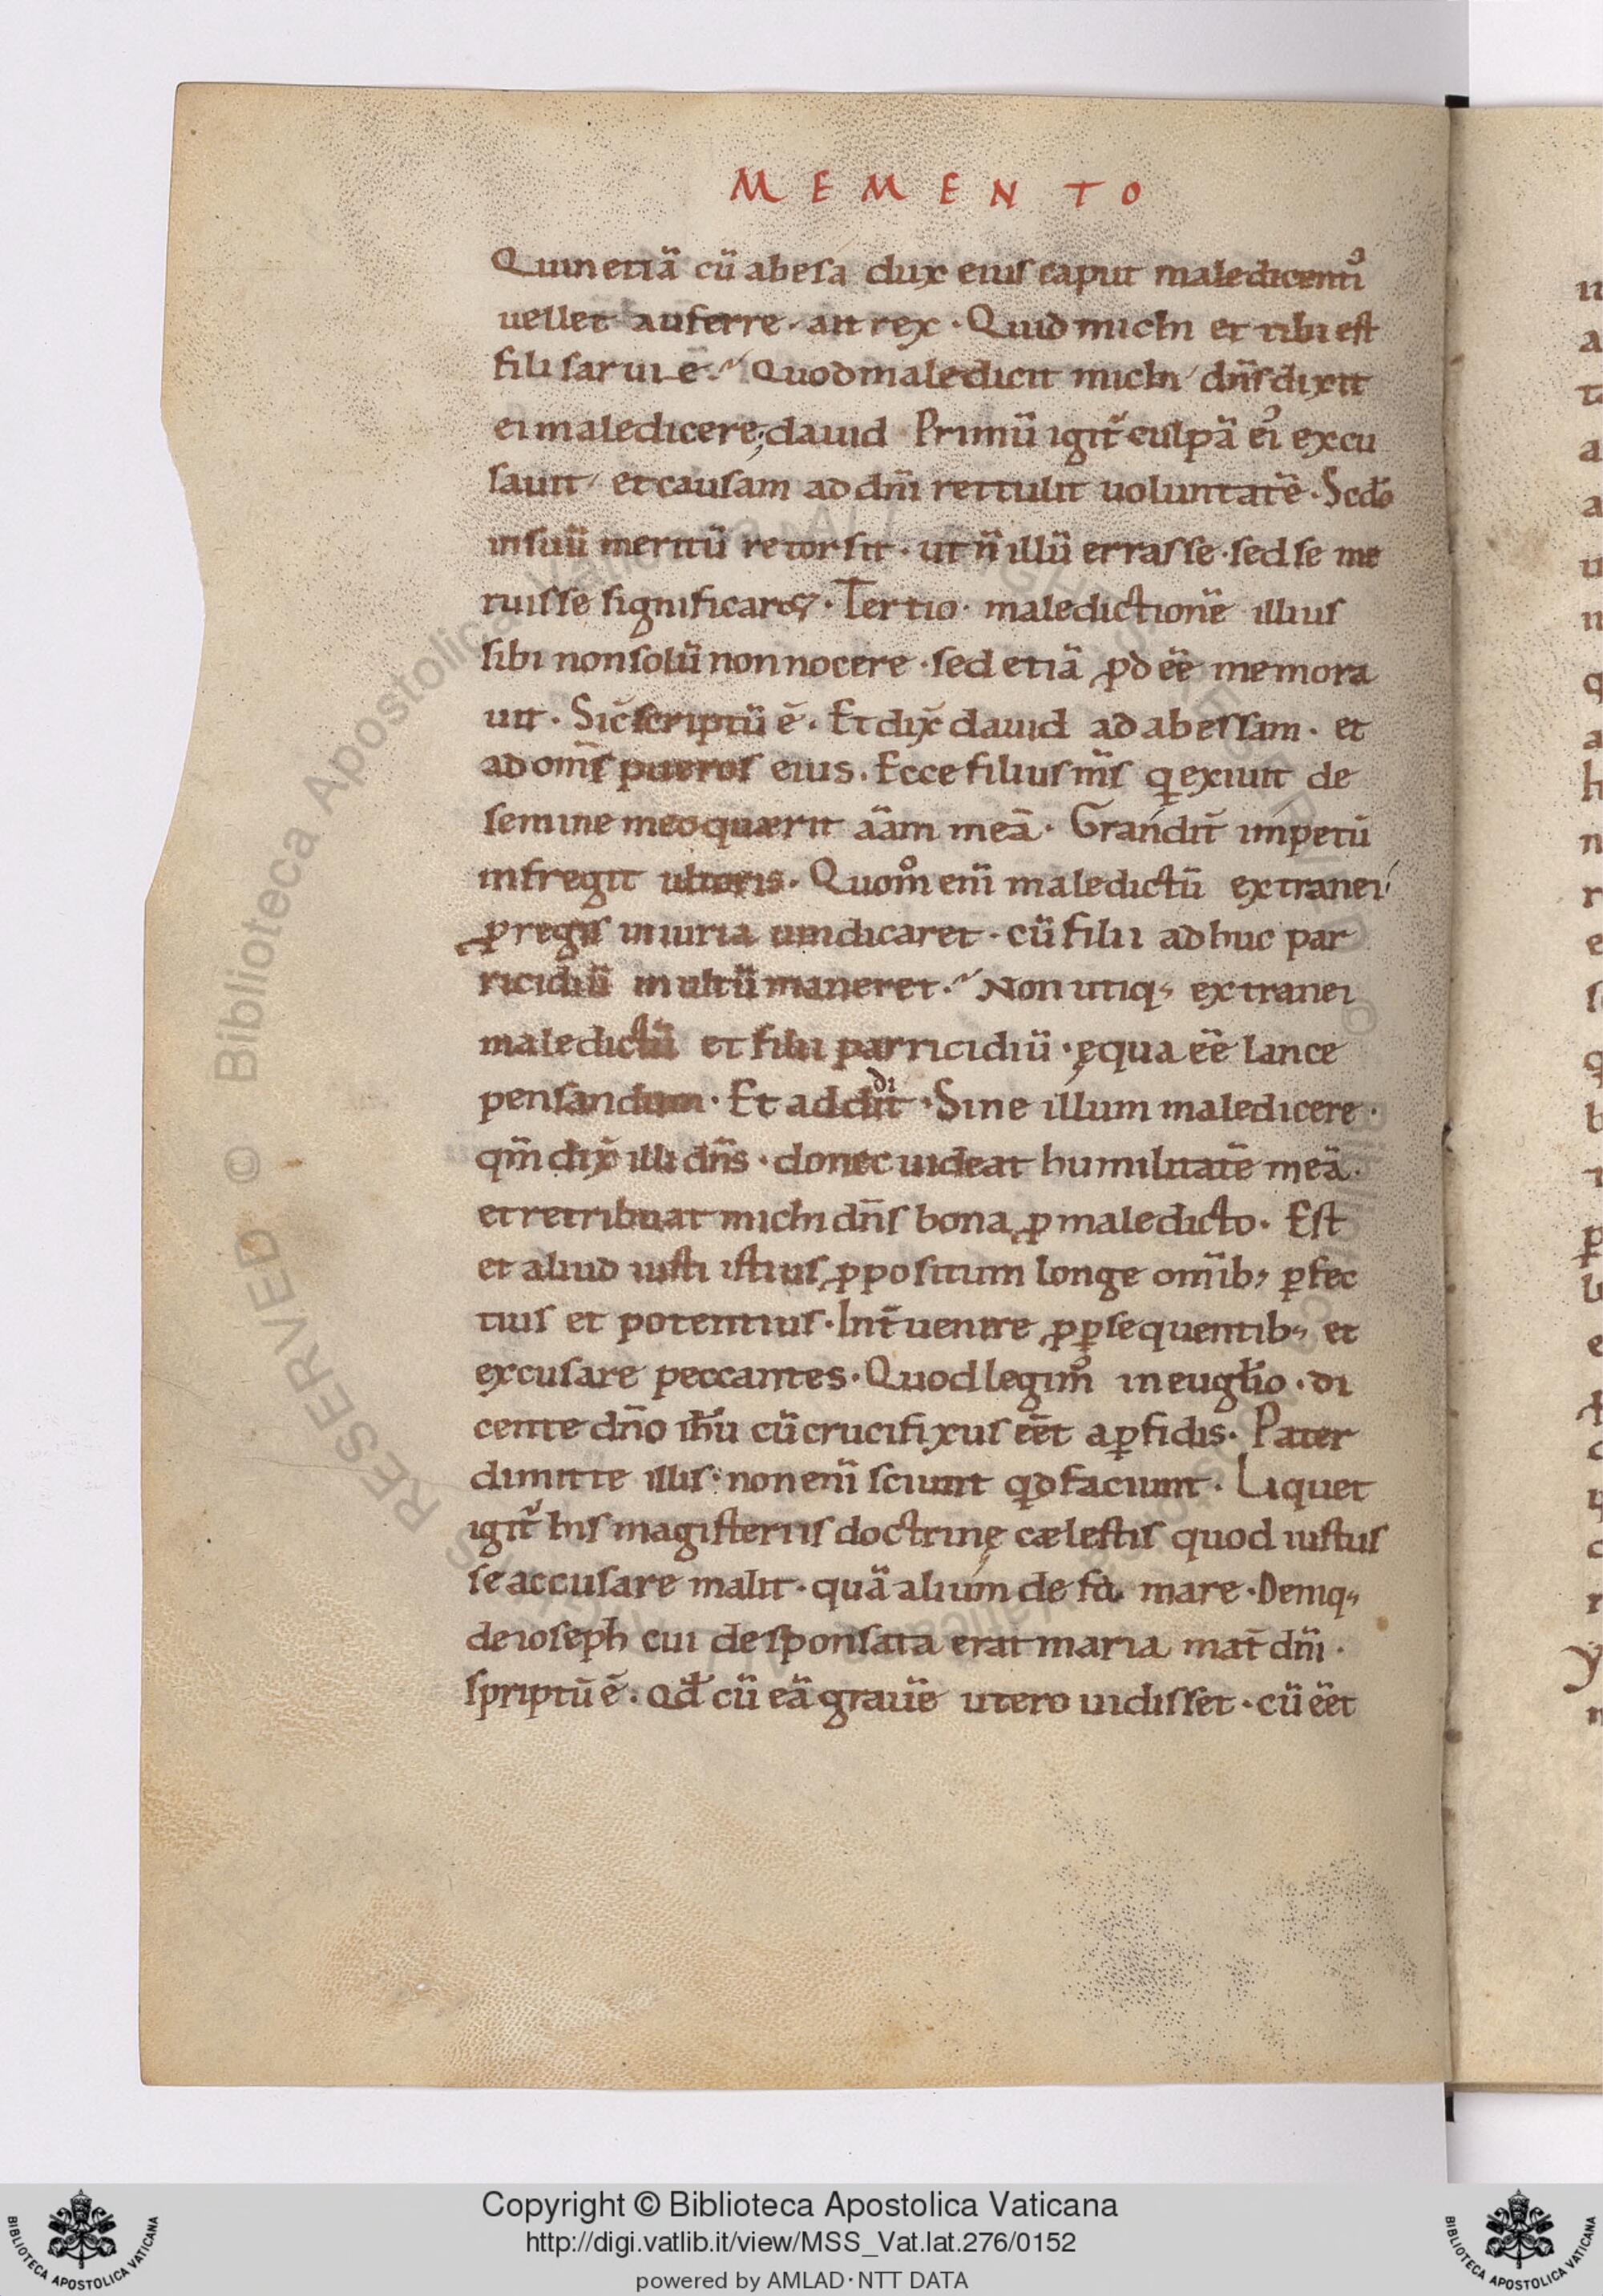 MEMENTO
Quin etiā cū abesa dux eius caput maledicentıꝰ
uellet auferre· ait rex· Quid michi et tibi est
fili saruie? Quod maledicit michi dn̄s dixit
ei maledicere; dauid Primū igit᷑ culpā eiꝰ excu
sauit et causam ad dn̄i rettulit uoluntatē· Scdo
in suū meritū retorsit· ut n̄ illū errasse· sed se me
ruisse significar&· Tertio· maledictionē illius
sibi non solū non nocere· sed etiā ꝓdēē memora
uit· Sic̄ scriptū ē· Et dix̄ dauid ad abessam· et
ad om̄s pueros eius. Ecce filius m̄s q̇ exiuit de
semine meo quærit āām meā· Grandit̄ impetū
infregit ultoris· Quom̊ eni̅ maledictū extranei
ꝓ regis iniuria uindicaret· cū filii adhuc par
ricidiū inultū maneret? Non utiq; extranei
maledictū et filii parricidiū· ęqua ēē lance
pensandum· Et addit di· Sine illum maledicere·
qm̄ dix̄ illi dn̄s· donec uideat humilitatē meā·
et retribuat michi dn̄s bona ꝓ maledicto· Est
et aliud iusti istius ꝓpositum longe om̄ib; ꝑfec
tius et potentius· Int̄uenire ꝓ ꝑsequentib; et
excusare peccantes· Quod legim᷒ in euglio· di
cente dn̄o ih̄u cū crucifixus ēēt a ꝑfidis· Pater
dimitte illis· non eni̅ sciunt qd faciunt· Liquet
igit᷑ his magisteriis doctrinę cælestis quod iustus
se accusare malit· quā alium defor mare· Deniq;
de ioseph cui desponsata erat maria mat̄ dn̄i·
spriptū ē· Qd̄ cū eā grauē utero uidisset· cū ēēt
Copyright © Biblioteca Apostolica Vaticana
http://digi.vatlib.it/view/MSS_Vat.lat.276/0152
powered by AMLAD·NTT DATA